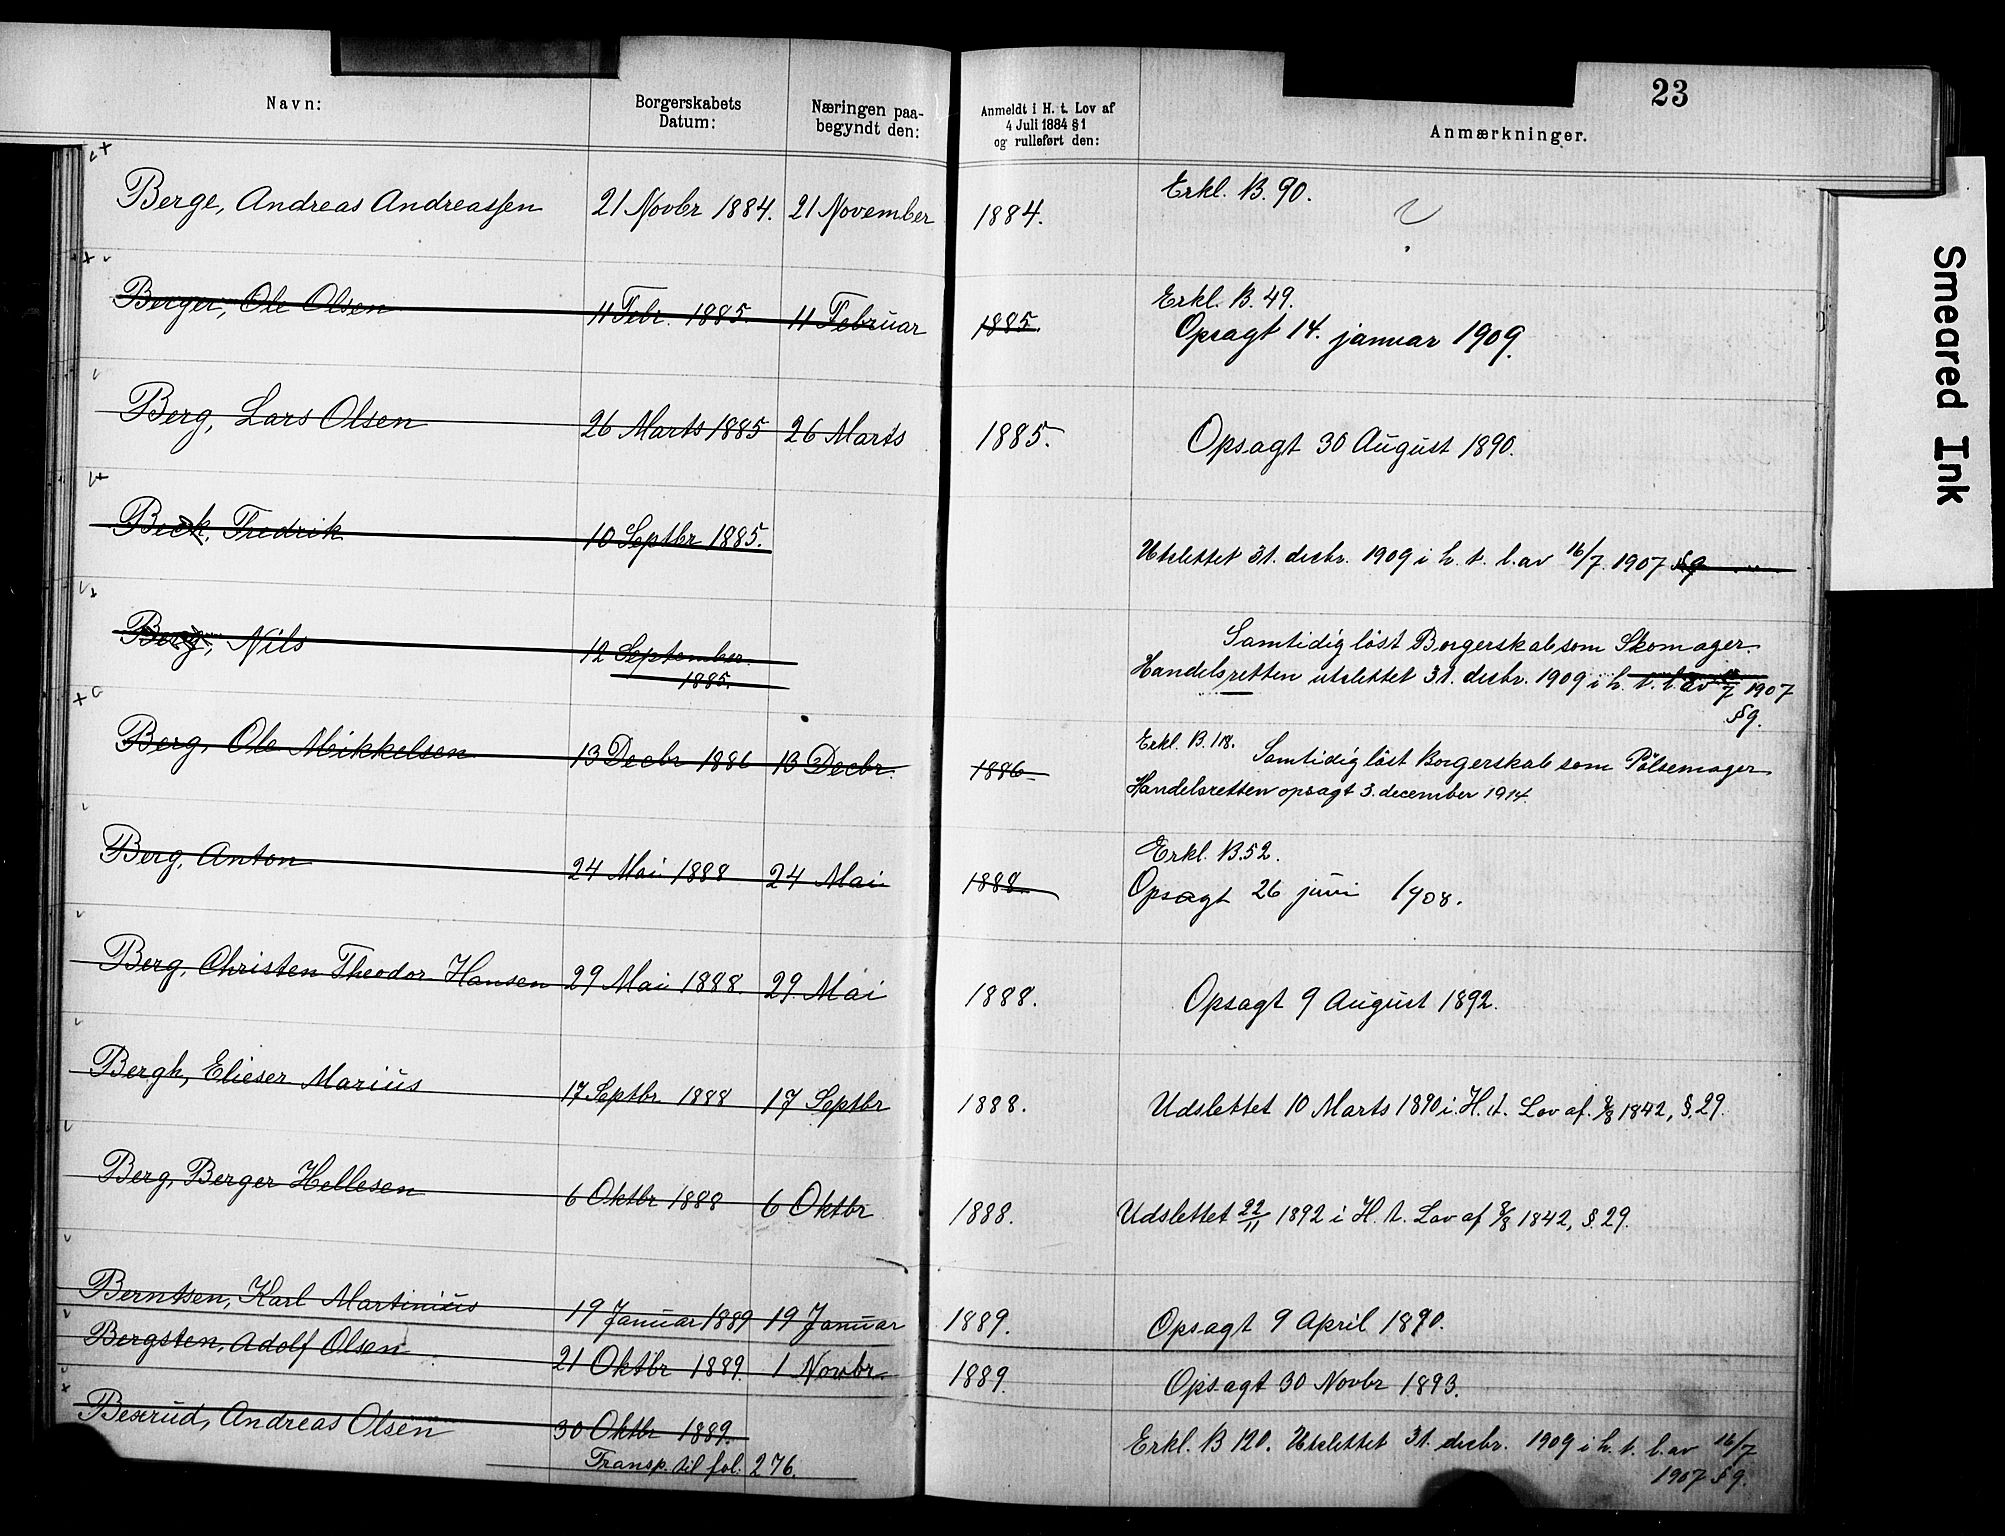 23
Navn:
Borgerskabets
Datum:
Næringen paa-
begyndt den:
Anmeldt i H. t. Lov af
4 Juli 1884 § 1
og rulleført den:
Anmærkninger.
Berge, Andreas Andreassen 21 Novbr 1884. 21 November 1884. Erkl. B. 90.
Berger, Ole Olsen 11 Febr. 1885. 11 Februar 1885. Erkl. B. 49.
Opsagt 14. januar 1909.
Berg, Lars Olsen 26 Marts 1885 26 Marts 1885. Opsagt 30 August 1890.
Beck, Fredrik 10 Septbr 1885. Utslettet 31. decbr. 1909 i h. t. l. av 16/7 1907 § 9
Berg, Nils 12 September 1885. Samtidig löst Borgerskab som Skomager.
Handelsretten utslettet 31. decbr. 1909 i h. t. l. av 16/7 1907
§ 9.
Berg, Ole Mikkelsen 13 Decbr 1886 13 Decbr. 1886 Erkl. B. 118. Samtidig löst Borgerskab som Pölsemager
Handelsretten opsagt 3. december 1914.
Berg, Anton 24 Mai 1888 24 Mai 1888. Erkl. B. 52.
Opsagt 26 juni 1908.
Berg, Christen Theodor Hansen 29 Mai 1888. 29 Mai 1888. Opsagt 9 August 1892.
Bergh, Elieser Marius 17 Septbr 1888 17 Septbr 1888. Udslettet 10 Marts 1890 i H. t. Lov af 8/8 1842, §. 29.
Berg, Berger Hellesen 6 Oktbr 1888 6 Oktbr 1888. Udslettet 22/11 1892 i H. t. Lov af 8/8 1842, §. 29.
Berntsen, Karl Martinius 19 Januar 1889 19 Januar 1889. Opsagt 9 April 1890.
Bergsten, Adolf Olsen 21 Oktbr 1889. 1 Novbr. 1889. Opsagt 30 Novbr 1893.
Bexrud, Andreas Olsen 30 Oktbr 1889. Erkl. B 120. Utslettet 31. decbr. 1909 i h. t. l. av 16/7
1907 § 9.
Transp. til fol. 276.
Smeared Ink